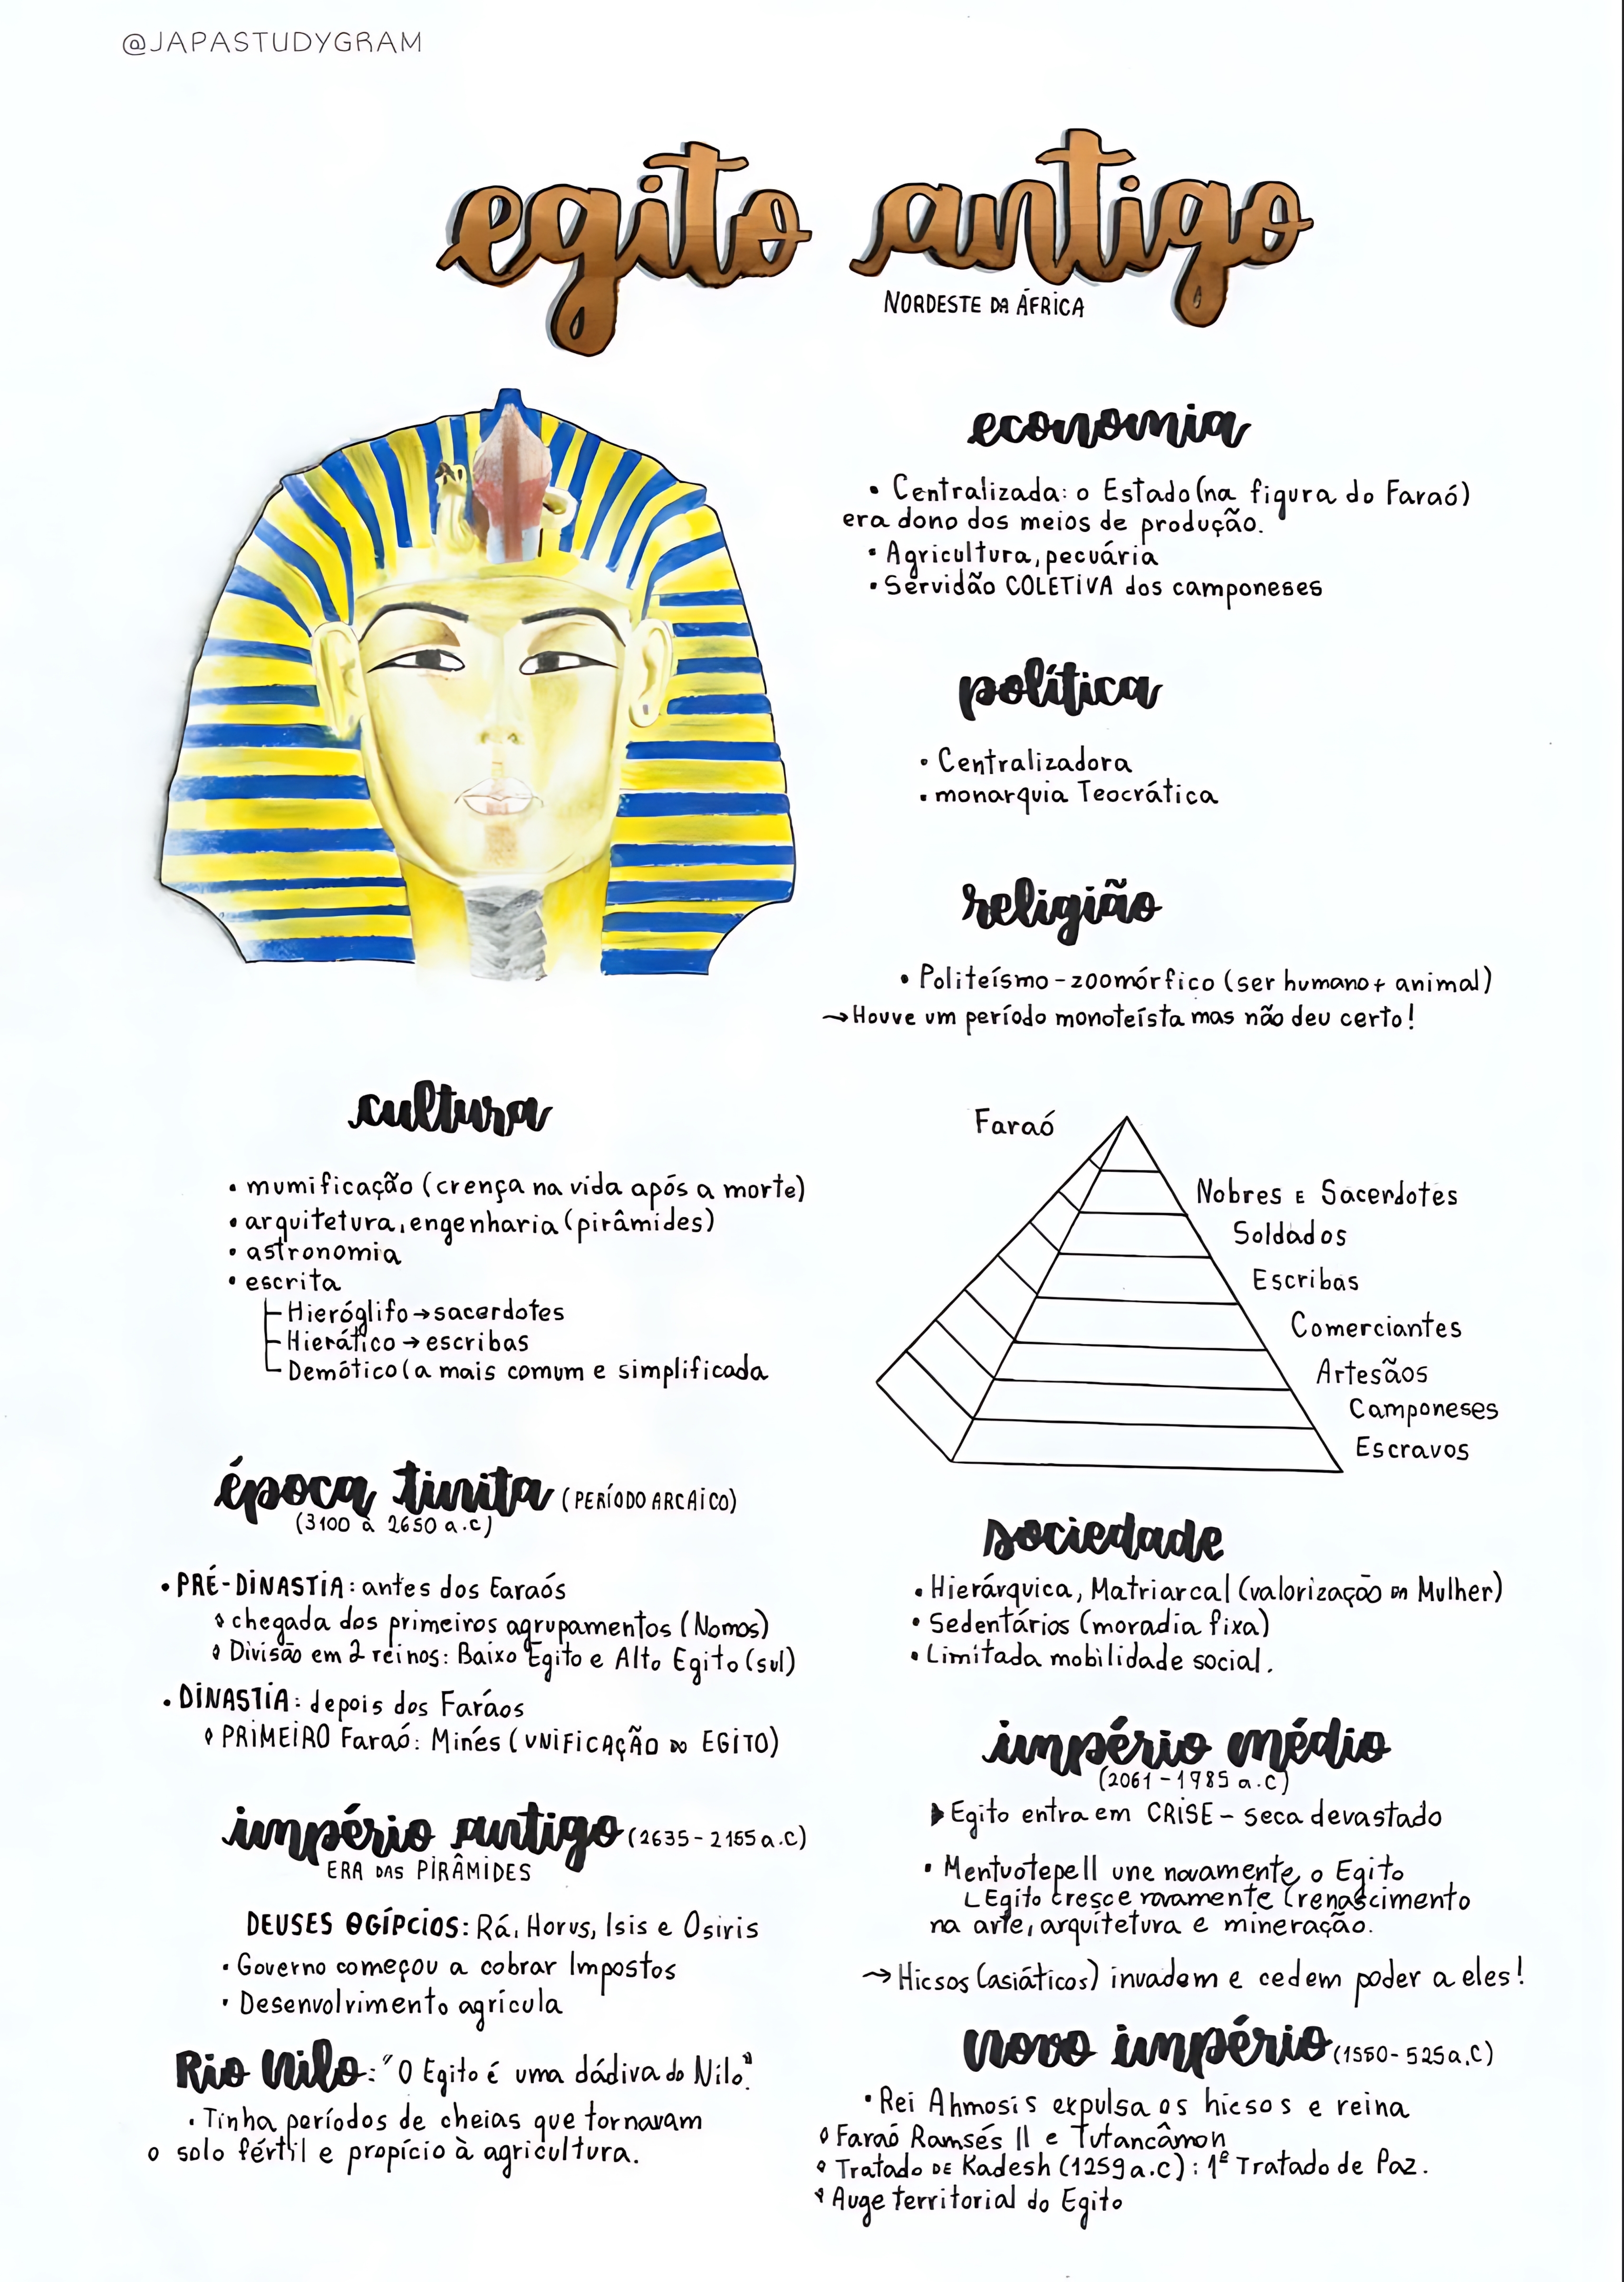 @JAPASTUDYGRAM
egito antigo
NORDESTE DA ÁFRICA
economia
• Centralizada: o Estado (na figura do Faraó)
era dono dos meios de produção.
• Agricultura, pecuária
• Servidão COLETIVA dos camponeses
política
• Centralizadora
• monarquia Teocrática
religião
• Politeísmo - zoomórfico (ser humano + animal)
→ Houve um período monoteísta mas não deu certo!
cultura
• mumificação (crença na vida após a morte)
• arquitetura, engenharia (pirâmides)
• astronomia
• escrita
Hieróglifo → sacerdotes
Hierático → escribas
Demótico (a mais comum e simplificada
Faraó
Nobres E Sacerdotes
Soldados
Escribas
Comerciantes
Artesãos
Camponeses
Escravos
época tinita (PERÍODO ARCAICO)
(3100 à 2650 a.c)
• PRÉ-DINASTIA: antes dos Earaós
chegada dos primeiros agrupamentos (Nomos)
Divisão em 2 reinos: Baixo Egito e Alto Egito (sul)
• DINASTIA: depois dos Faráos
PRIMEIRO Faraó: Minés (UNIFICAÇÃO DO EGITO)
império antigo (2635 - 2155 a.C)
ERA DAS PIRÂMIDES
DEUSES EGÍPCIOS: Rá, Horus, Isis e Osiris
• Governo começou a cobrar Impostos
• Desenvolvimento agrícula
Rio Nilo: "O Egito é uma dádiva do Nilo."
• Tinha períodos de cheias que tornavam
o solo fértil e propício à agricultura.
sociedade
• Hierárquica, Matriarcal (valorização DA Mulher)
• Sedentários (moradia fixa)
• Limitada mobilidade social.
império médio
(2061 - 1985 a.C)
Egito entra em CRISE - seca devastado
• Mentuotepell une novamente o Egito
Egito cresce novamente (renascimento
na arte, arquitetura e mineração.
→ Hicsos (asiáticos) invadem e cedem poder a eles!
novo império (1550 - 525 a.C)
• Rei Ahmosis expulsa os hicsos e reina
Faraó Ramsés II e Tutancâmon
Tratado DE Kadesh (1259 a.c): 1º Tratado de Paz.
Auge territorial do Egito